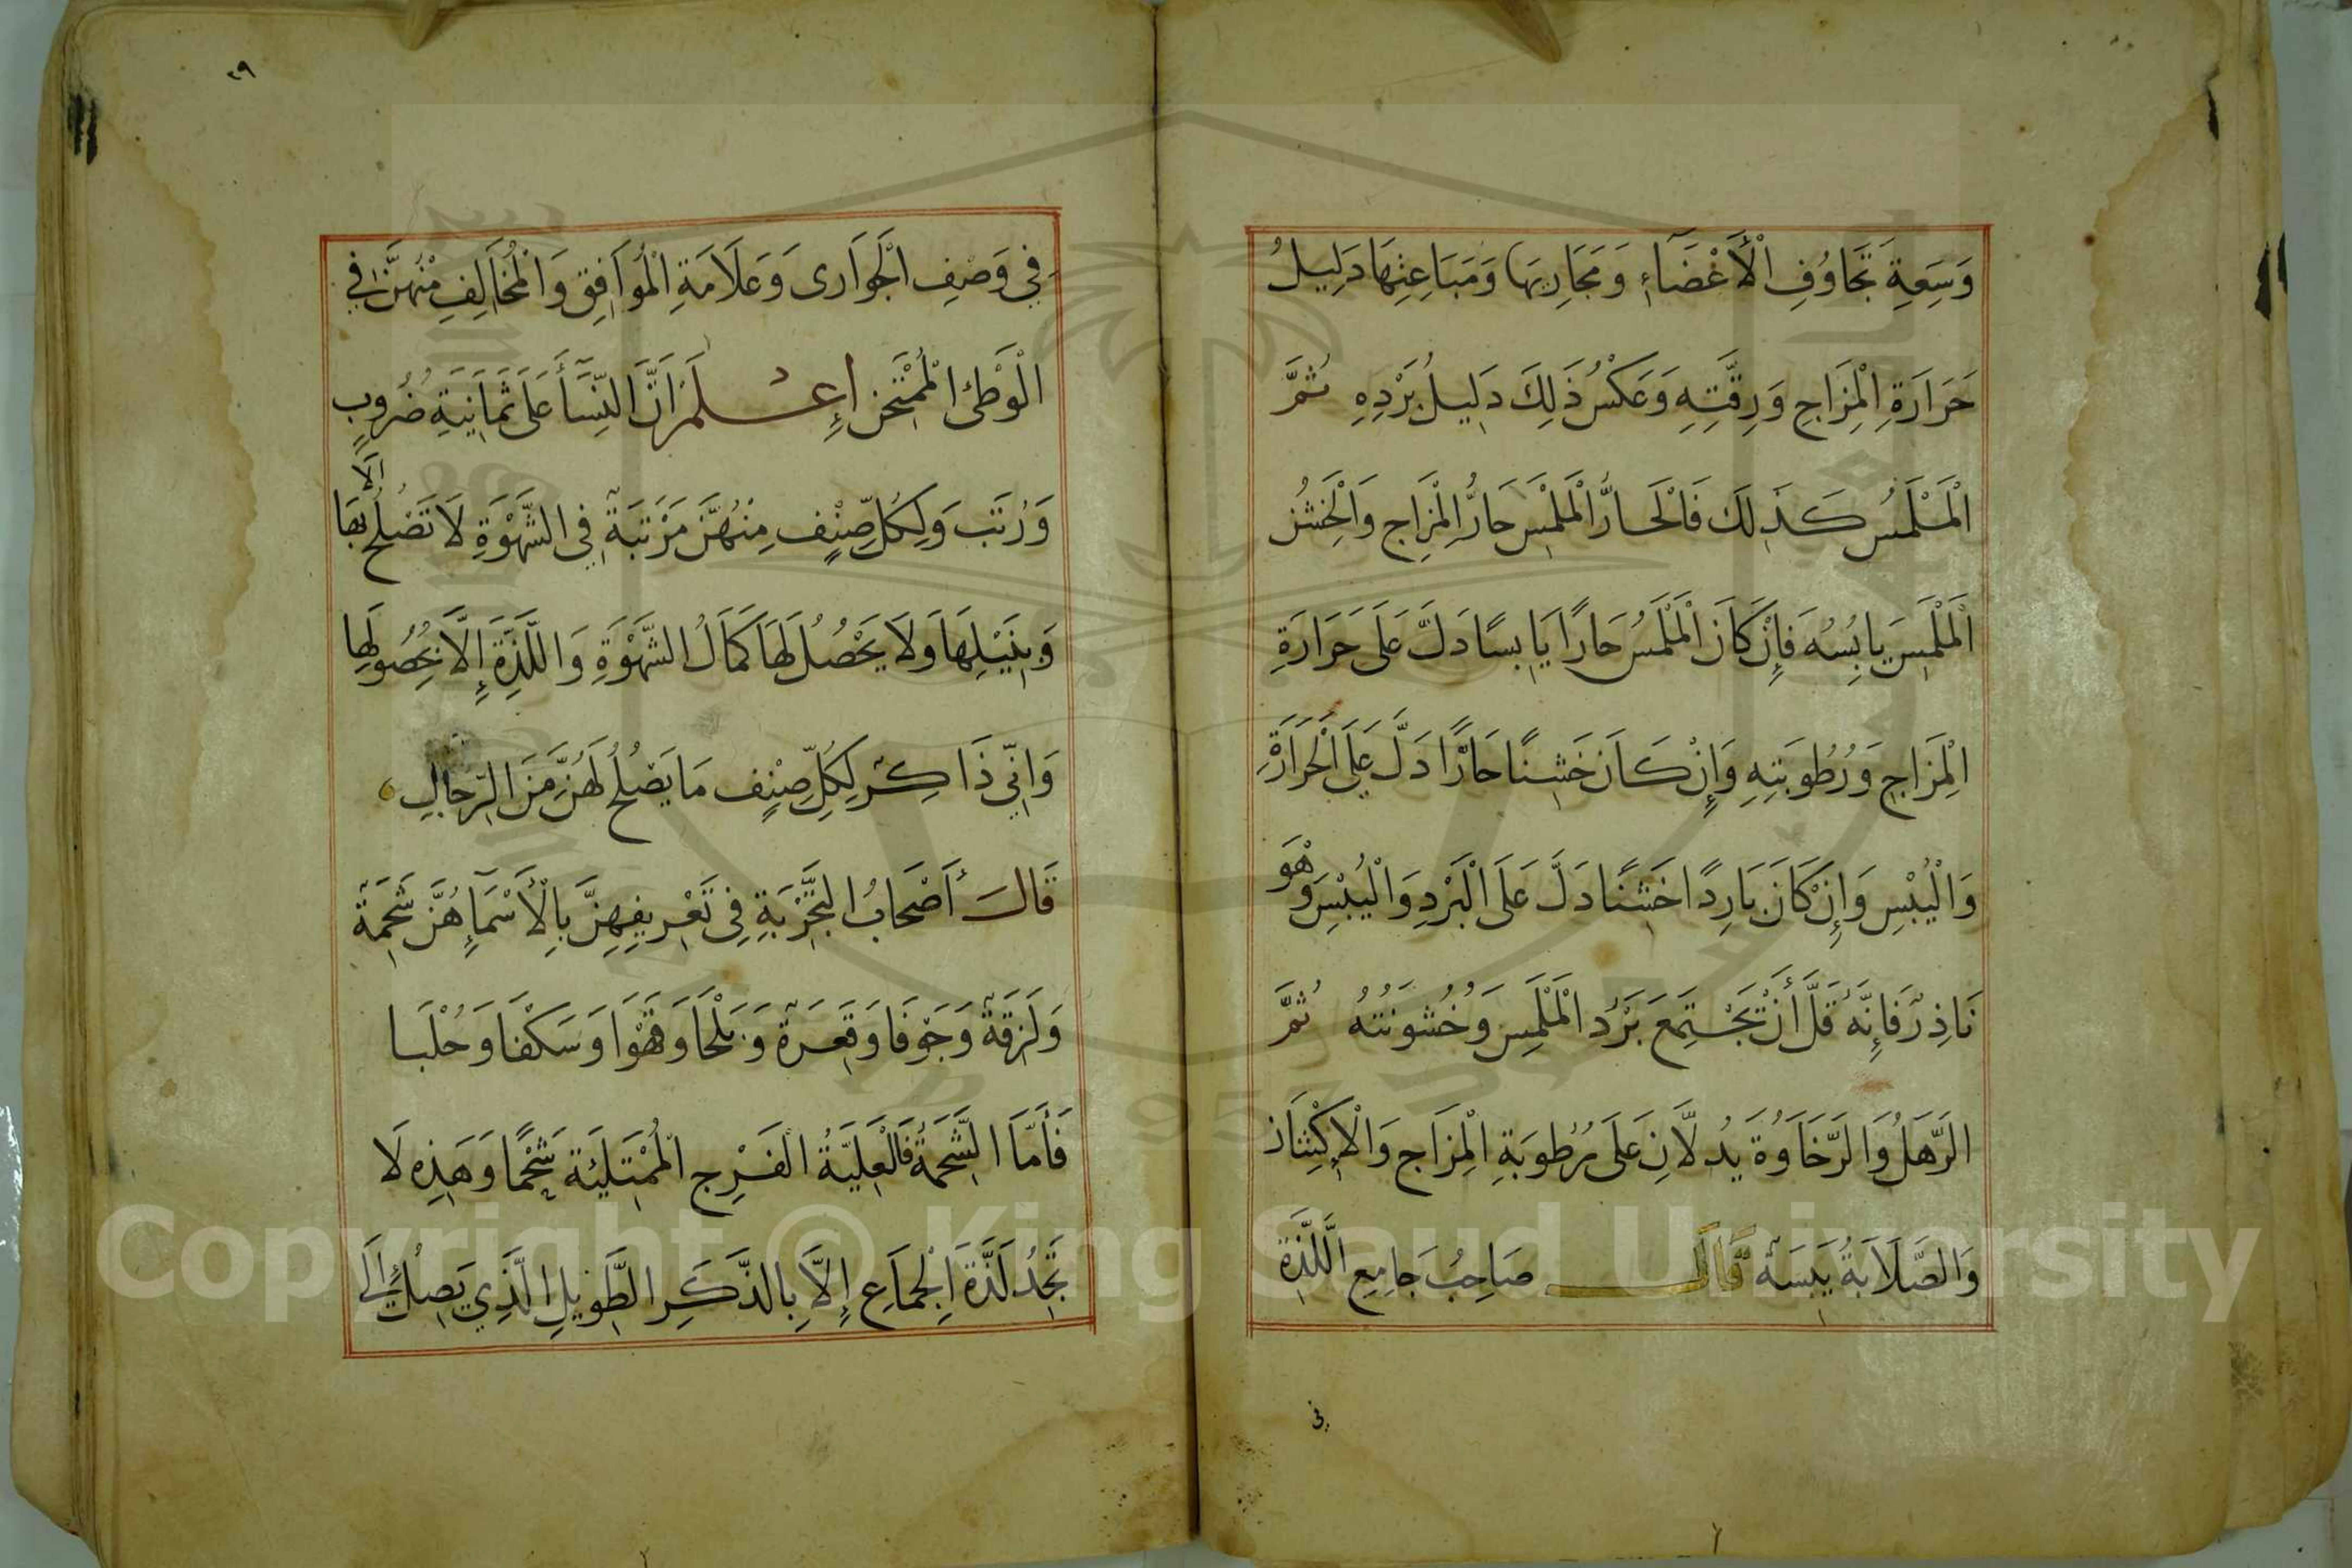 وَسِعَةِ تَجَاوُفِ الْأَعْضَآءِ وَمَجَارِيهَا وَمَبَاعِثِهَا دَلِيلُ
حَرَارَةِ الْمِزَاجِ وَرِقَّتِهِ وَعَكْسُ ذَلِكَ دَلِيلُ بَرْدِهِ ثُمَّ
الْمَلْمَسُ كَذَلِكَ فَالْحَارُّ الْمَلْمَسِ حَارُّ الْمِزَاجِ وَالْخَشْنُ
الْمَلْمَسِ يَابِسُهُ فَإِنْ كَانَ الْمَلْمَسُ حَارًا يَابِسًا دَلَّ عَلَى حَرَارَةِ
الْمِزَاجِ وَرُطُوبَتِهِ وَإِنْ كَانَ خَشِنًا حَارًّا دَلَّ عَلَى الْحَرَارَةِ
وَالْيُبْسِ وَإِنْ كَانَ بَارِدًا خَشِنًا دَلَّ عَلَى الْبَرْدِ وَالْيُبْسِ وَهْوَ
نَاذِرْ فَإِنَّهُ قَلَّ أَنْ تَجْتَمِعَ بَرْدُ الْمَلْمَسِ وَخُشُونَتُهُ ثُمَّ
الرَّهَلُ وَالرَّخَاوَةُ يَدُلَّانِ عَلَى رُطُوبَةِ الْمِزَاجِ وَالْإِكْتِنَازِ
وَالصَّلَابَةُ يَبَسَهْ قَالَ صَاحِبُ جَامِعِ اللَّذَّةِ
فى
٢٩
فِي وَصْفِ الْجَوَارى وَعَلَامَةِ الْمُوَافِقِ وَالْمُخَالِفِ مْنُهنَّ فِي
الْوَطْئ الْمُمْتَحَن إِعْلَمْ اَنَّ النِّسَآَ عَلَى ثَمَانِيَةِ ضُرُوبٍ
وَرُتَب وَلِكُلِّ صِنْفٍ مِنْهُنَّ مَرْتَبَةٌ فِي الشَّهْوَةِ لَا تَصْلُحُ إلَّا بِهَا
وَبِنَيْلِهَا وَلَا يَحْصُلُ لَهَا كَمَالُ الشَّهْوَةِ وَاللَّذَّةِ إِلَّا بِحُصُولِهَا
وَانِّي ذَاكِرْ لِكُلِّ صِنْفٍ مَا يَصْلُحُ لَهُنَّ مِنَ الرِّجَالِ
قَالَ أَصْحَابُ التَّجْرِبَةِ فِي تَعْرِيفِهِنَّ بِالْأَسْمَآءِ هُنَّ شَحِمَةْ
وَلَزِقَةْ وَجَوْفَا وَقَعِرَةْ وَبَلْحَا وَقَهْوَا وَسَكْفَا وَحُلْبَا
فَأَمَّا الشَّحِمَةُ فَالْغَلِيَّةُ الْفَرْجِ الْمُمْتَلِئَة شَحْمًا وَهَذِه لَا
تَجِدُ لَذَّةَ الْجِمَاعِ إِلَّا بِالذَّكَرِ الطَّوِيلِ الَّذِي يَصِلُ إِلَى
Copyright © King Saud University